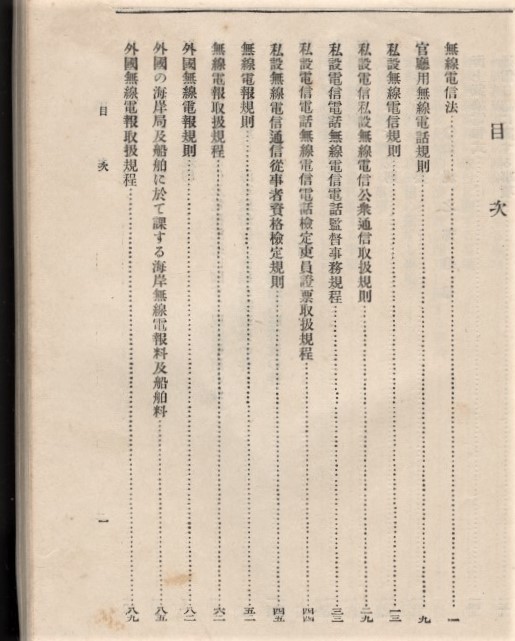 目次
無線電信法……一
官廳用無線電話規則……九
私設無線電信規則……一三
私設電信私設無線電信公衆通信取扱規則……二九
私設電信電話無線電信電話監督事務規程……三三
私設電信電話無線電信電話檢定吏員證票取扱規程……四四
私設無線電信通信從事者資格檢定規則……四五
無線電報規則……五一
無線電報取扱規程……六一
外國無線電報規則……八二
外國の海岸局及船舶に於て課する海岸無線電報料及船舶料……八五
外國無線電報取扱規程……八九
目次 一